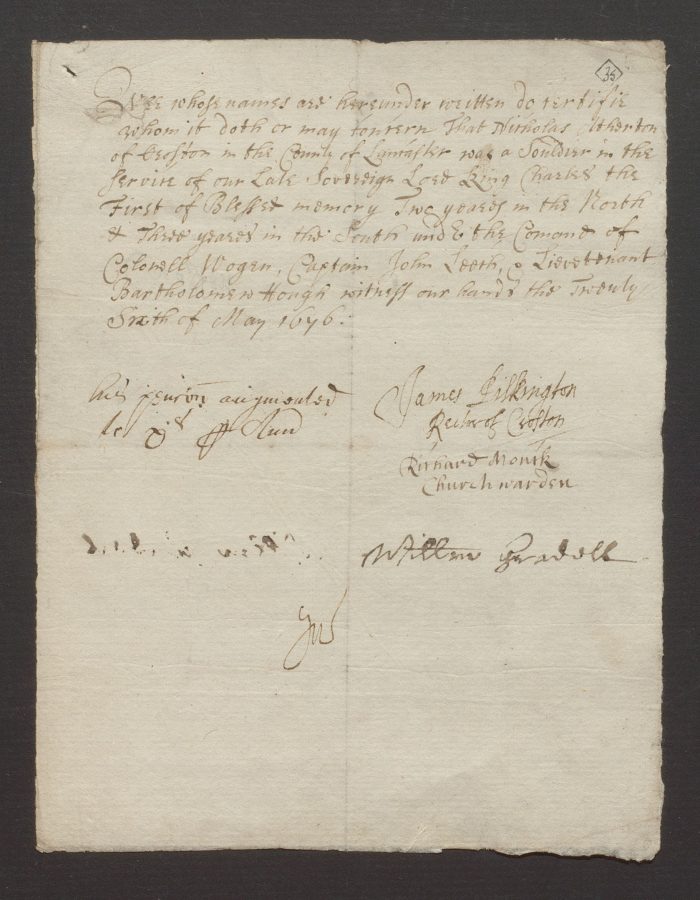 35
Wee whose names are hereunder written do certifie
whom it doth or may concern That Nicholas Atherton
of Croston in the County of Lancaster was a Souldier in the
service of our Late Sovereign Lord King Charles the
First of Blessed memory Two yeares in the North
& Three yeares in the South undr the Comand of
Colonell Wogen, Captain John Leeth, & Lievetenant
Bartholomew Hough witness our hands the Twenty
Sixth of May 1676.
his pencon augmented
to Ann
James Pilkington
Rector of Croston
Richard Monck
Churchwarden
Willm Gradell